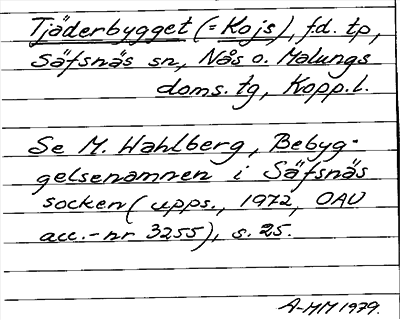 Tjäderbygget (= Kojs), f.d. tp,
Säfsnäs sn, Nås o. Malungs
doms. tg, Kopp. l.
Se M. Wahlberg, Bebyg-
gelsenamnen i Säfsnäs
socken (upps., 1972, OAU
acc.-nr 3255), s. 25.
A-MM 1979.